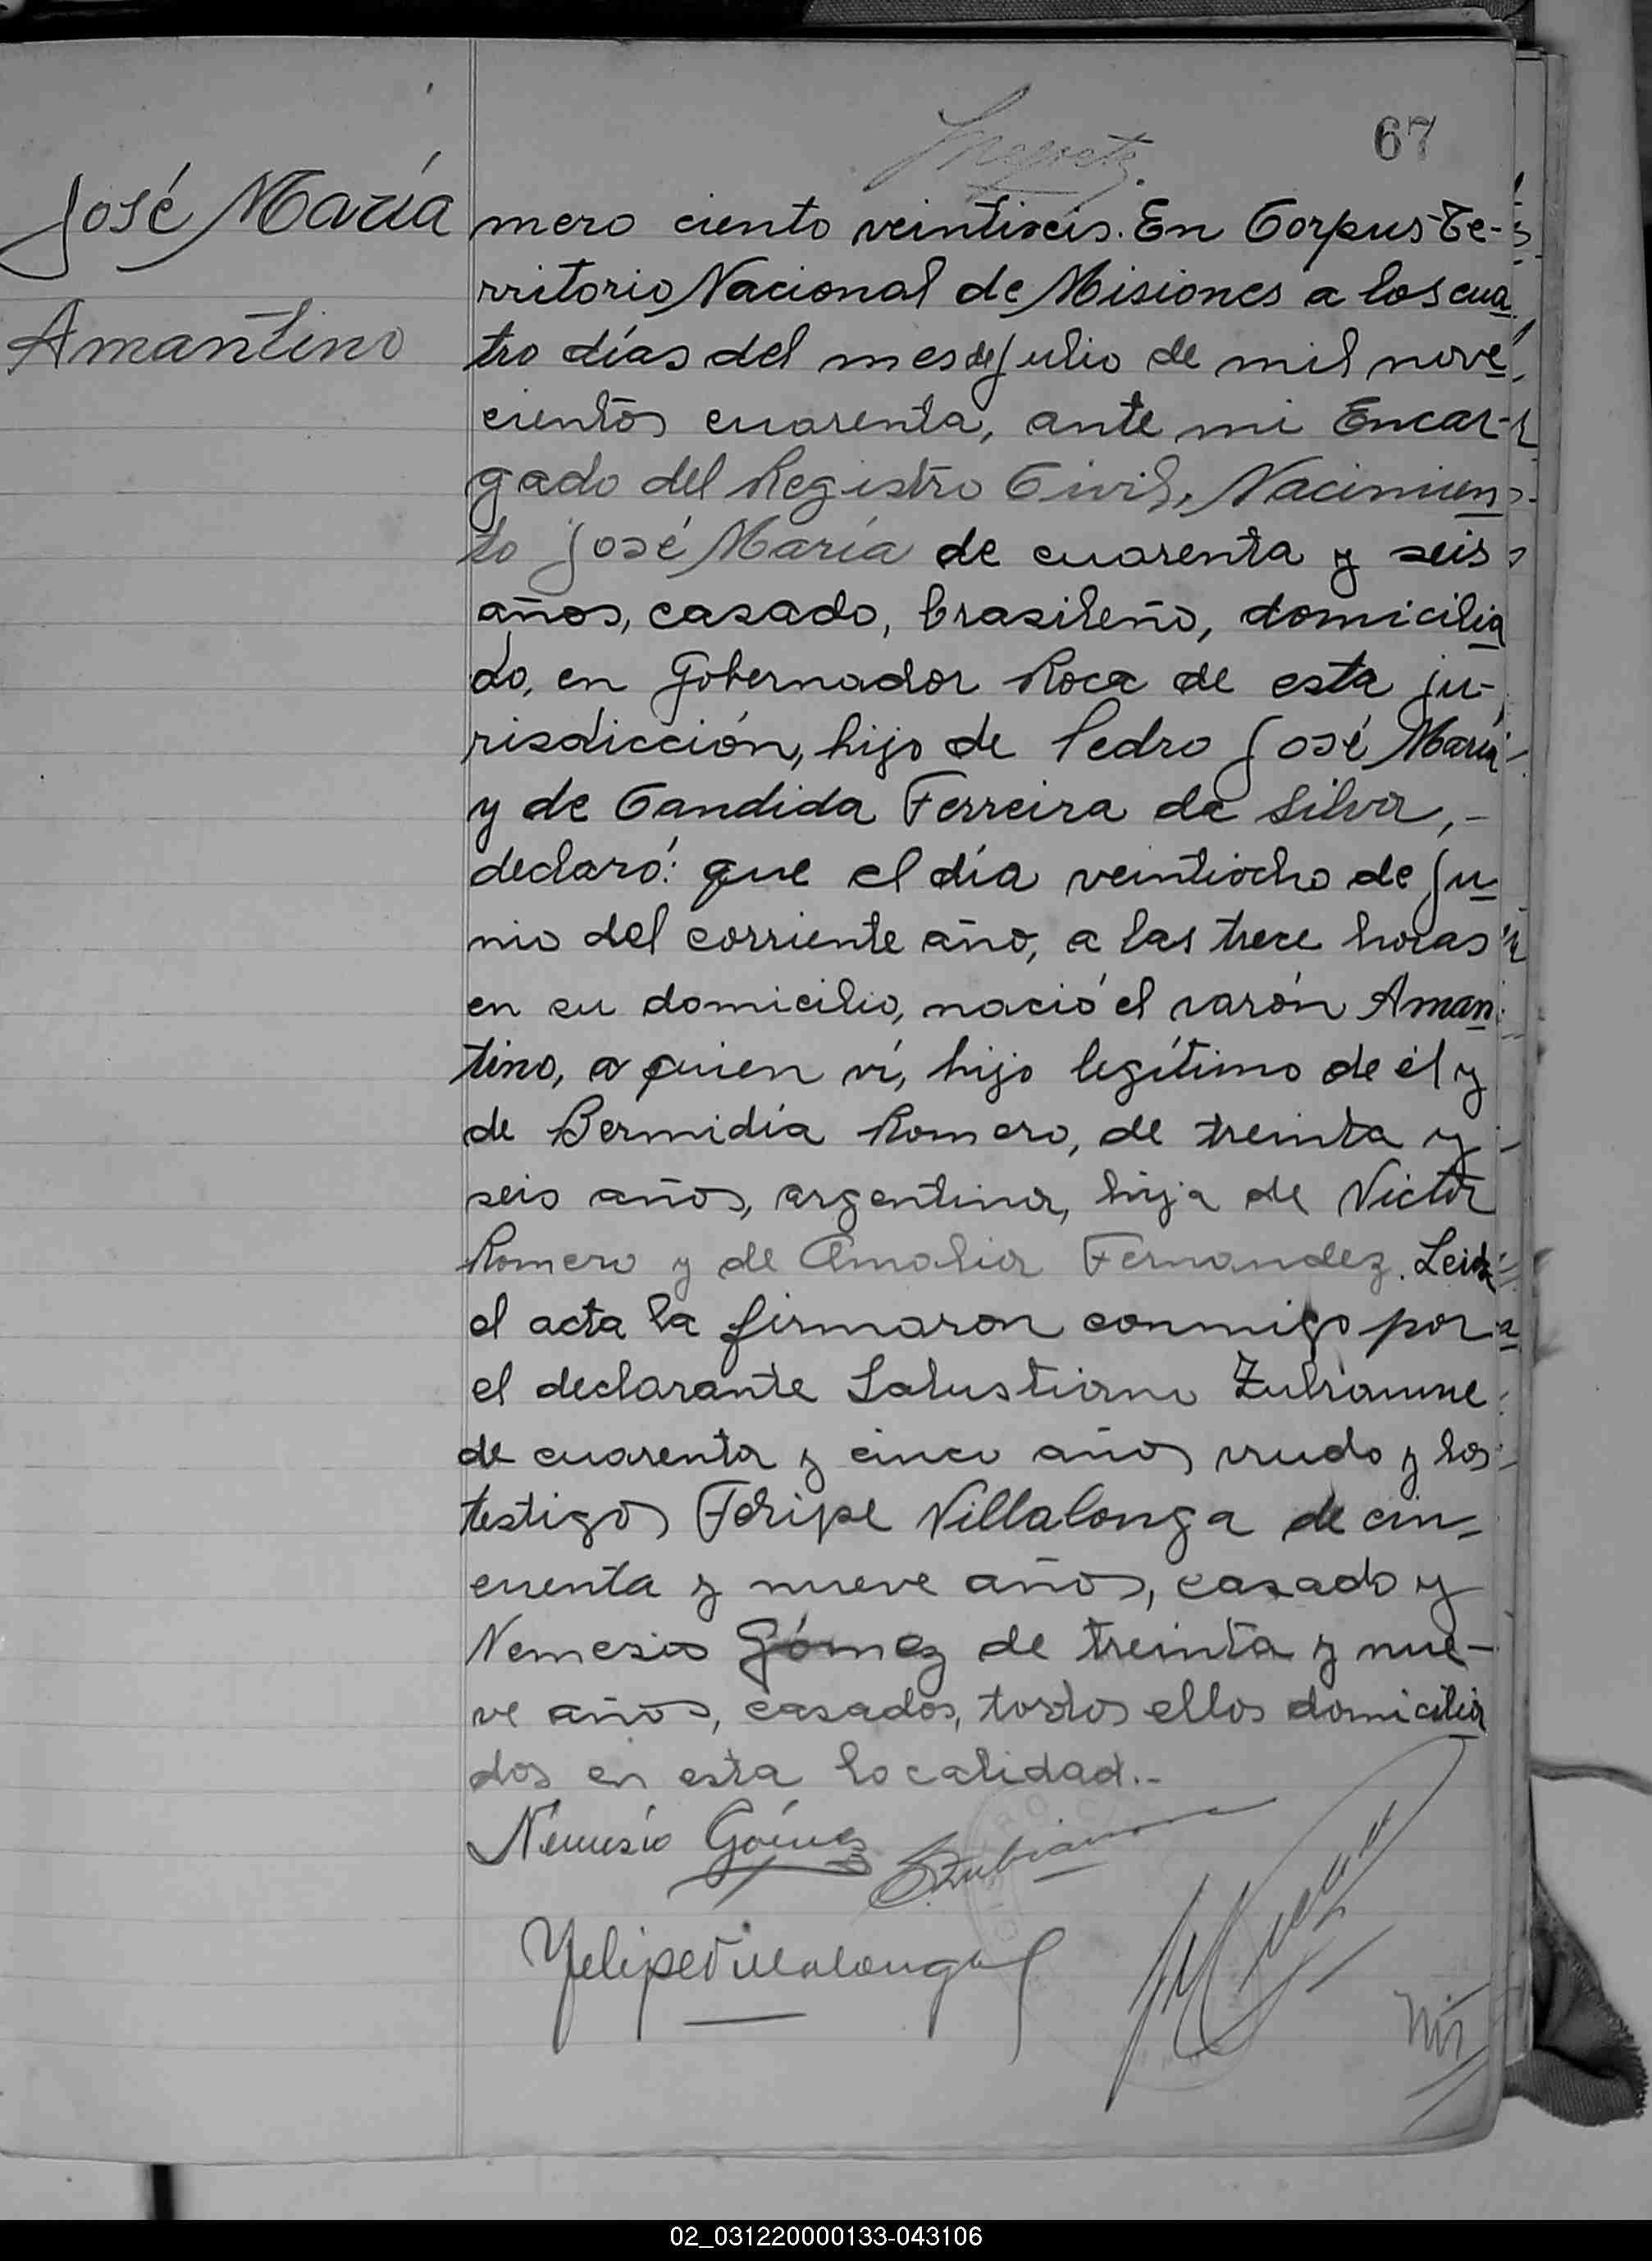 67
José María
Amantino
mero ciento veintiseis. En Corpus Te-
rritorio Nacional de Misiones a los cua
tro días del mes de Julio de mil nove
cientos cuarenta, ante mi Encar-
gado del Registro Civil, Nacimien
to José María de cuarenta y seis
años, casado, brasileño, domicilia
do, en Gobernador Roca de esta ju-
risdicción, hijo de Pedro José María
y de Candida Ferreira da Silva,-
declaró: que el día veintiocho de Ju
nio del corriente año, a las trece horas
en su domicilio, nació el varón Aman
tino, a quien ví, hijo legítimo de él y
de Bermidia Romero, de treinta y
seis años, argentina, hija de Victor
Romero y de Amalia Fernandez. Leida
el acta la firmaron conmigo por
el declarante Salustiano
de cuarenta y cinco años viudo y los
testigos Felipe Villalonga de cin-
cuenta y nueve años, casado y
Nemesio Gómez de treinta y nue-
ve años, casados, todos ellos domicilia
dos en esta localidad.-
Nemesio Gómez
Felipe Villalonga
02_031220000133-043106